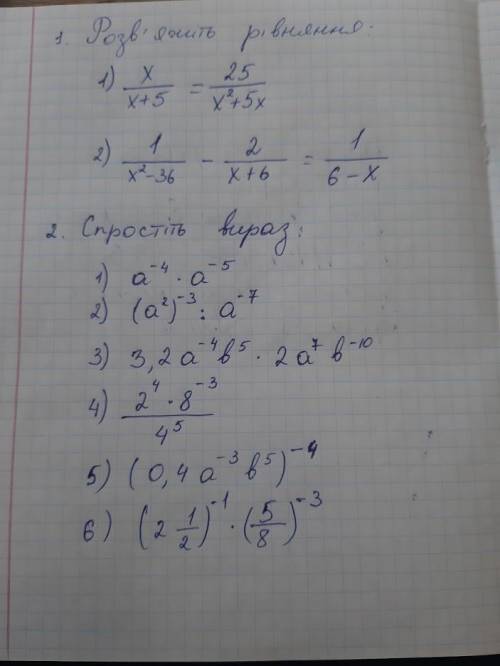 1. Розв'яжіть рівняння.
1) x/(x+5) = 25/(x²+5x)
2) 1/(x²-36) - 2/(x+6) = 1/(6-x)
2. Спростіть вираз:
1) a⁻⁴ · a⁻⁵
2) (a²)⁻³ : a⁻⁷
3) 3,2a⁻⁴b⁵ · 2a⁷b⁻¹⁰
4) (2⁴ · 8⁻³)/4⁵
5) (0,4a⁻³b⁵)⁻⁴
6) (2 1/2)⁻¹ · (5/8)⁻³